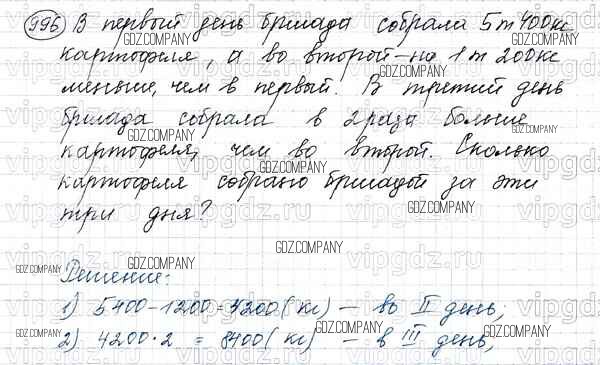 996 В первый день бригада собрала 5 т 400 кг
картофеля, а во второй - на 1 т 200 кг
меньше, чем в первый. В третий день
бригада собрала в 2 раза больше
картофеля, чем во второй. Сколько
картофеля собрано бригадой за эти
три дня?
Решение:
1) 5400 - 1200 = 4200 (кг) — во II день;
2) 4200 · 2 = 8400 (кг) — в III день;
GDZ.COMPANY
vipgdz.ru